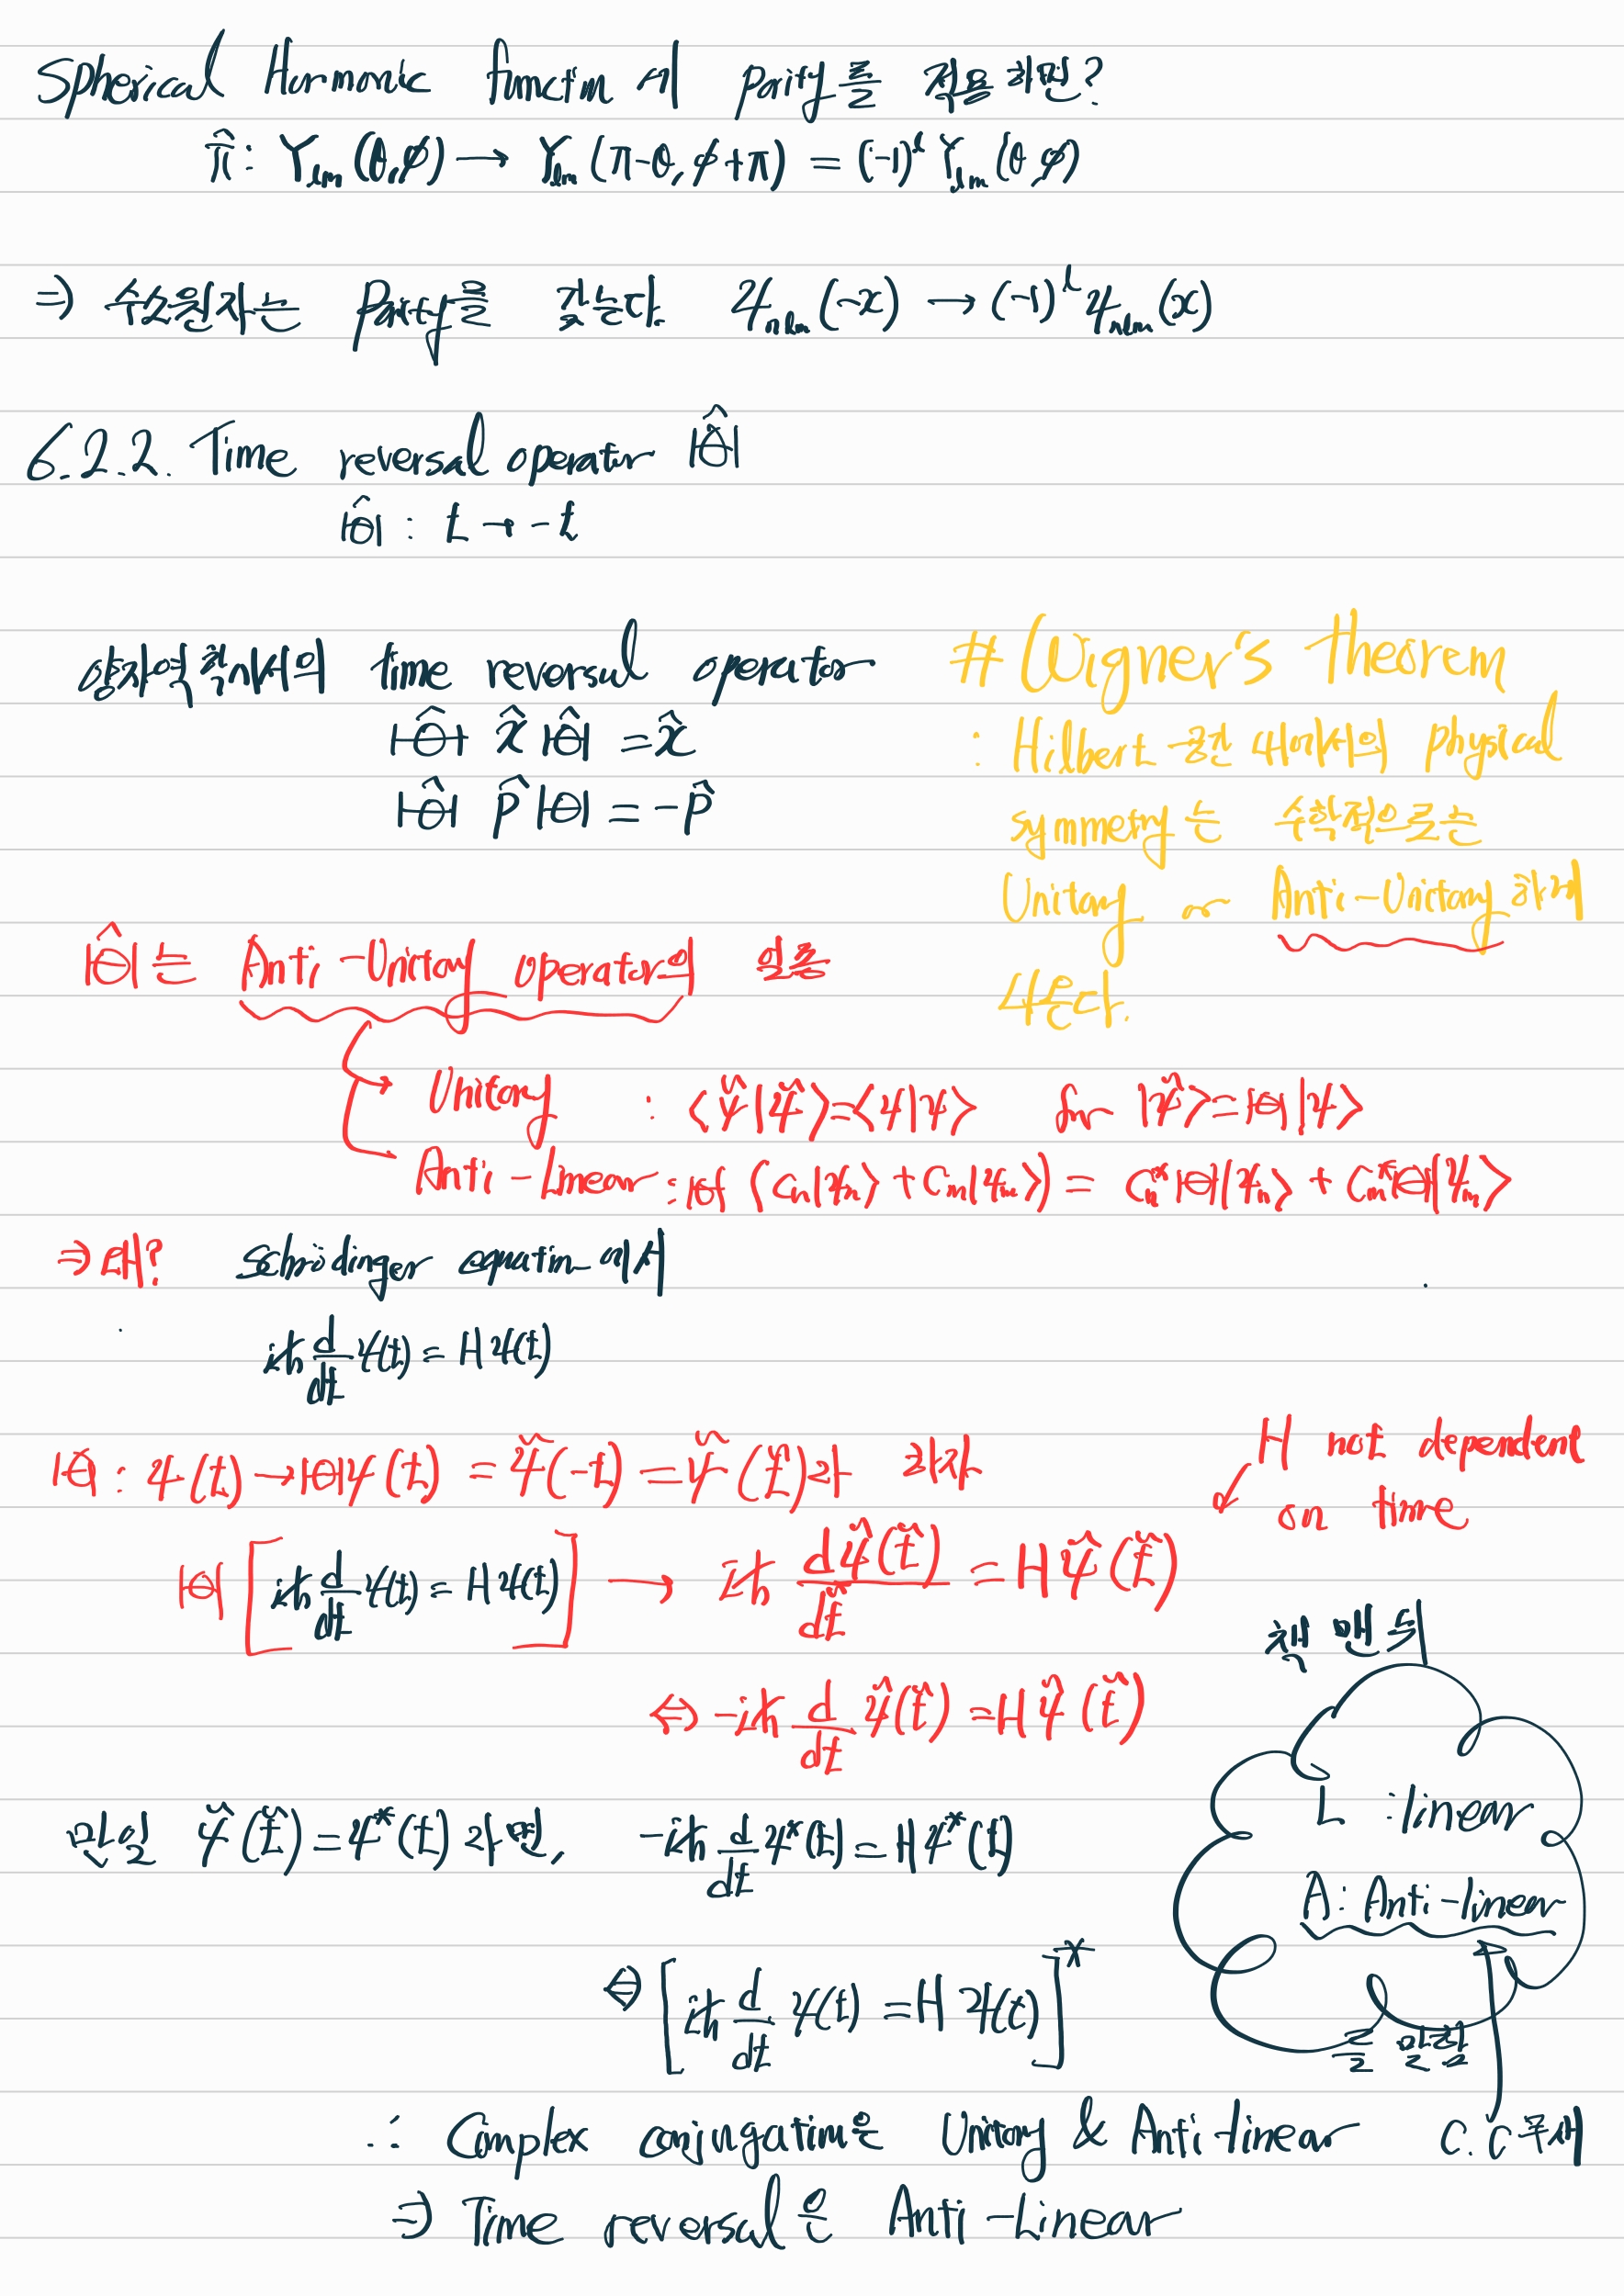 Spherical Harmonic function 에 parity를 적용하면?
π̂ : Yₗₘ(θ,φ) → Yₗₘ(π-θ, φ+π) = (-1)ˡ Yₗₘ(θ,φ)
⇒ 수소원자는 Parity를 갖는다 ψₙₗₘ(-x) → (-1)ˡ ψₙₗₘ(x)
6.2.2. Time reversal operator Θ̂
Θ̂ : t → -t
양자역학에서의 time reversal operator
Θ̂ x̂ Θ̂ = x̂
Θ̂ p̂ Θ = -p̂
# Wigner's Theorem
: Hilbert 공간 내에서의 physical
symmetry는 수학적으로는
Unitary or Anti-Unitary 하게
나온다.
Θ̂는 Anti-Unitary operator의 일종
Unitary : ⟨ψ̃|ψ̃⟩=⟨ψ|ψ⟩ for |ψ̃⟩=Θ|ψ⟩
Anti-Linear : Θ(Cₙ|ψₙ⟩+Cₘ|ψₘ⟩) = Cₙ*Θ|ψₙ⟩ + Cₘ*Θ|ψₘ⟩
⇒ 왜? Schrödinger equation에서
iħ d/dt ψ(t) = Hψ(t)
Θ : ψ(t) → Θψ(t) = ψ̃(-t) = ψ̃(t̃)라 하자
H not dependent
on time
Θ[iħ d/dt ψ(t) = Hψ(t)] → iħ dψ̃(t̃)/dt̃ = Hψ̃(t̃)
⇔ -iħ d/dt ψ̃(t̃) = Hψ̃(t̃)
책 맨 뒤
L : linear
A : Anti-linear
만일 ψ̃(t̃) = ψ*(t)라면, -iħ d/dt ψ*(t) = Hψ*(t)
⇔ [iħ d/dt ψ(t) = Hψ(t)]*
∴ Complex conjugation은 Unitary & Anti-linear
C.C 주세
⇒ Time reversal은 Anti-Linear